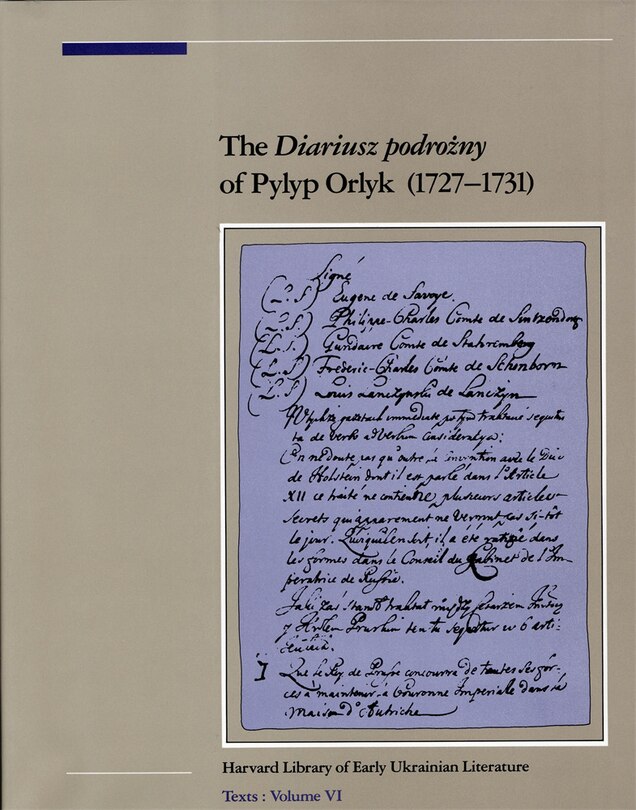 The Diariusz podrożny
of Pylyp Orlyk (1727–1731)
Signé
(L.S.) Eugene de Savoye.
(L.S.) Philippe-Charles Comte de Sintzendorf
(L.S.) Gundaire Comte de Stahremberg
(L.S.) Frederic-Charles Comte de Schenborn
(L.S.) Louis Lanczynski de Lanczyn
immediate post traktat sequitur
ta de verbo ad verbum
On ne doute pas qu'outre la convention avec le Duc
de Holstein dont il est parlé dans l'Article
XII ce traité ne contienne plusieurs articles
secrets qui apparement ne verront pas si-tôt
le jour. Quoiqu'il en soit, il a été ratifié dans
les formes dans le Conseil du Cabinet de l'Im-
peratrice de Russie.
Jaki zaś stanął traktat między
y ten tu sequitur w 6 arti-
I Que le Roy de Prusse concourra de toutes ses for-
ces à maintenir la Couronne Imperiale dans la
Maison d'Autriche
Harvard Library of Early Ukrainian Literature
Texts : Volume VI